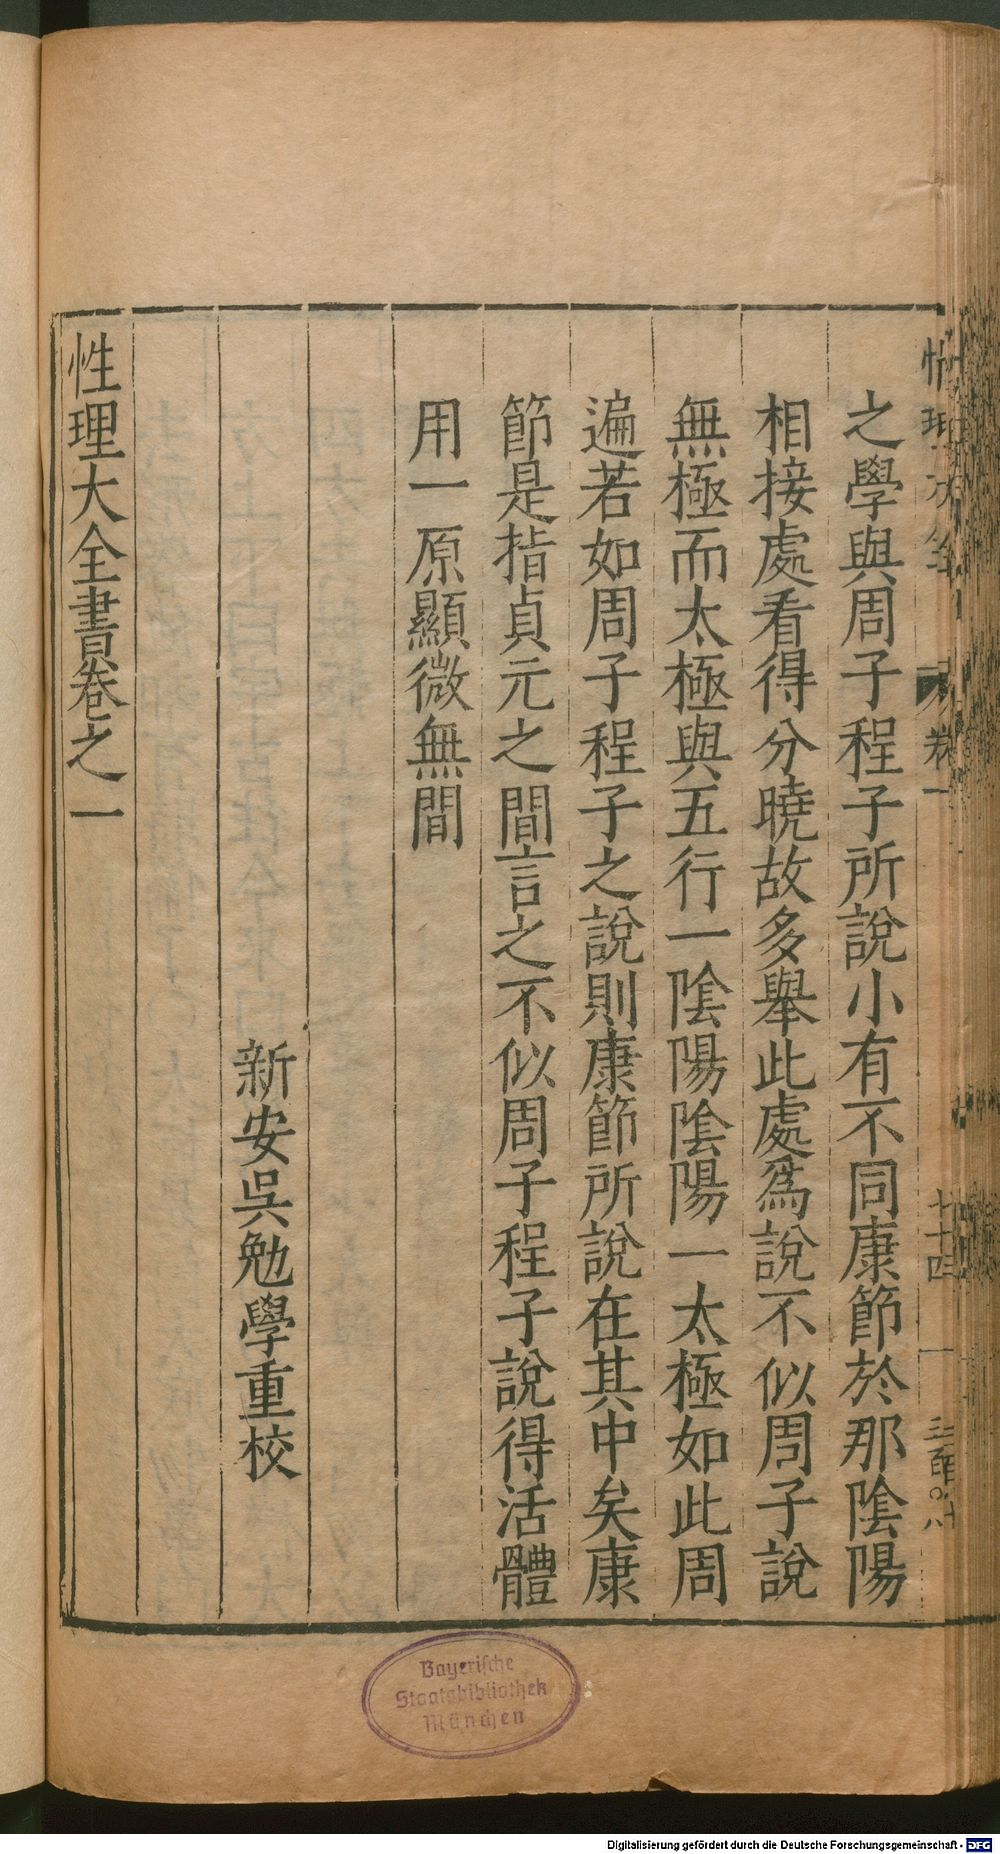 之學與周子程子所說小有不同康節於那陰陽
相接處看得分曉故多舉此處爲說不似周子說
無極而太極與五行一陰陽陰陽一太極如此周
遍若如周子程子之說則康節所說在其中矣康
節是指貞元之間言之不似周子程子說得活體
用一原顯微無間
新安吳勉學重校
性理大全書卷之一
Bayerische
Staatsbibliothek
München
Digitalisierung gefördert durch die Deutsche Forschungsgemeinschaft - DFG